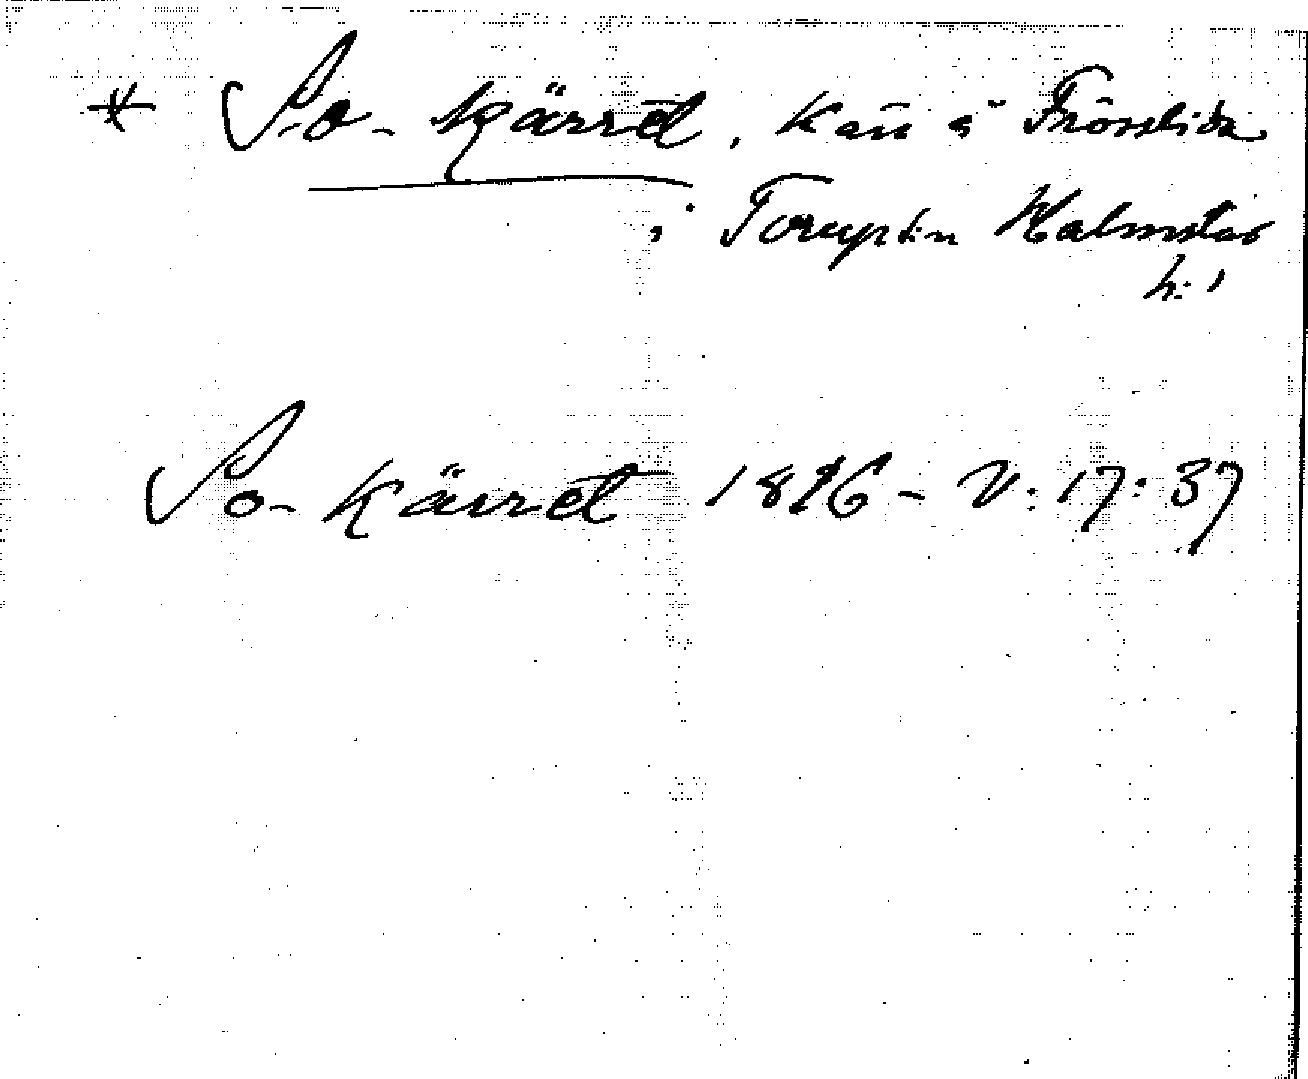 * So-kärret, Kärr å Frösslida
i Torup sn Halmstad
h:
So-kärret 1826 - V:17:37